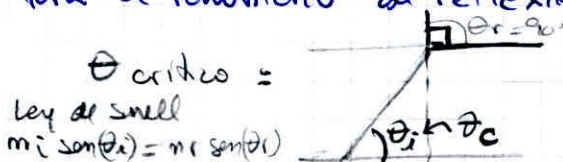 para el fenómeno de reflexión
θr = 90°
θ crítico =
Ley de snell
ni sen(θi) = nr sen(θr)
θi ← θc